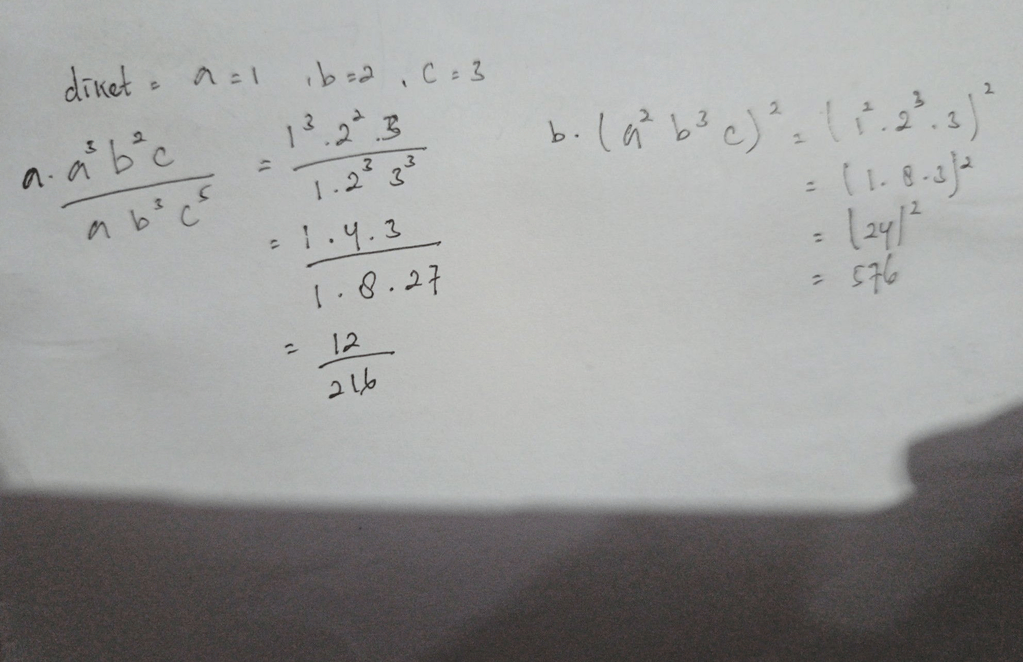 diket = a = 1 , b = 2 , c = 3
a. a³ b² c / a b³ c⁵ = 1³ . 2² . 3 / 1 . 2³ 3³
= 1 . 4 . 3 / 1 . 8 . 27
= 12 / 216
b. (a² b³ c)² = (1² . 2³ . 3)²
= (1 . 8 . 3)²
= (24)²
= 576